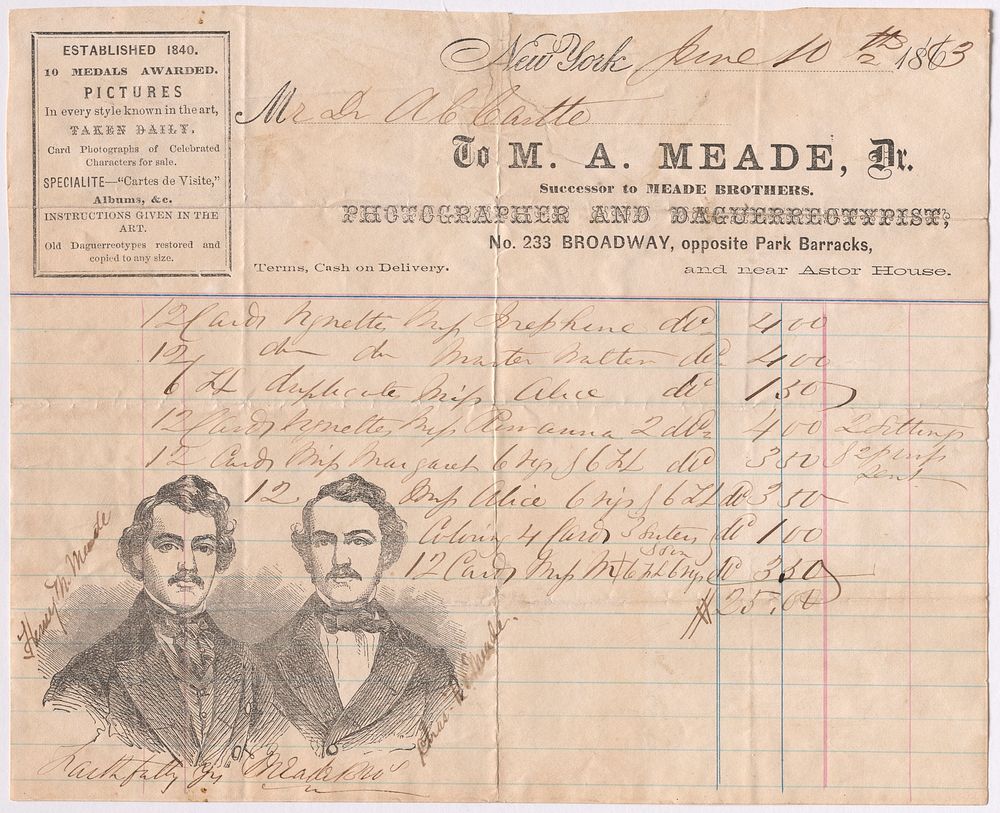 ESTABLISHED 1840.
10 MEDALS AWARDED.
PICTURES
In every style known in the art,
TAKEN DAILY.
Card Photographs of Celebrated
Characters for sale.
SPECIALITE—"Cartes de Visite,"
Albums, &c.
INSTRUCTIONS GIVEN IN THE
ART.
Old Daguerreotypes restored and
copied to any size.
New York June 10th 1863
Mr Dr A C Castle
To M. A. MEADE, Dr.
Successor to MEADE BROTHERS.
PHOTOGRAPHER AND DAGUERREOTYPIST,
No. 233 BROADWAY, opposite Park Barracks,
Terms, Cash on Delivery. and near Astor House.
12 Cards Vignettes Miss Josephine 4 00
12 do do Master Walter 4 00
6 duplicates Miss Alice 1 50
12 Cards Vignettes Miss 2 4 00 2 Sittings
12 Cards Miss Margaret 6 6 3 50
12 Miss Alice 6 6 3 50
Coloring 4 Cards 1 00
12 Cards Miss 3 50
$25.00
Henry M. Meade
Meade
Faithfully Yrs Meade Bros